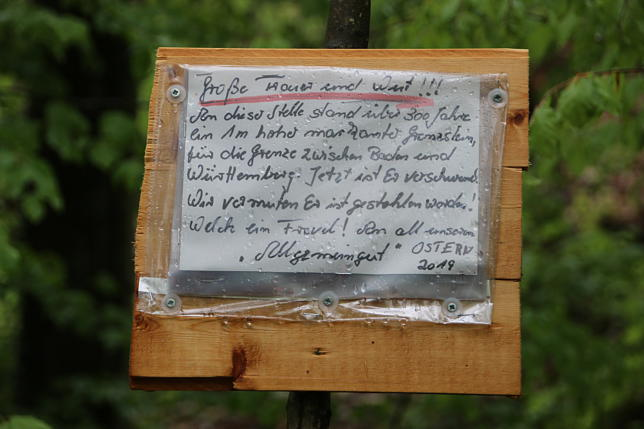 Große Trauer und Wut!!!
An dieser Stelle stand über 300 Jahre
ein 1m hoher markanter Grenzstein,
für die Grenze zwischen Baden und
Württemberg. Jetzt ist Er verschwund.
Wir vermuten Er ist gestohlen worden!
Welch ein Frevel! An all unserem
"Allgemeingut" OSTERN
2019